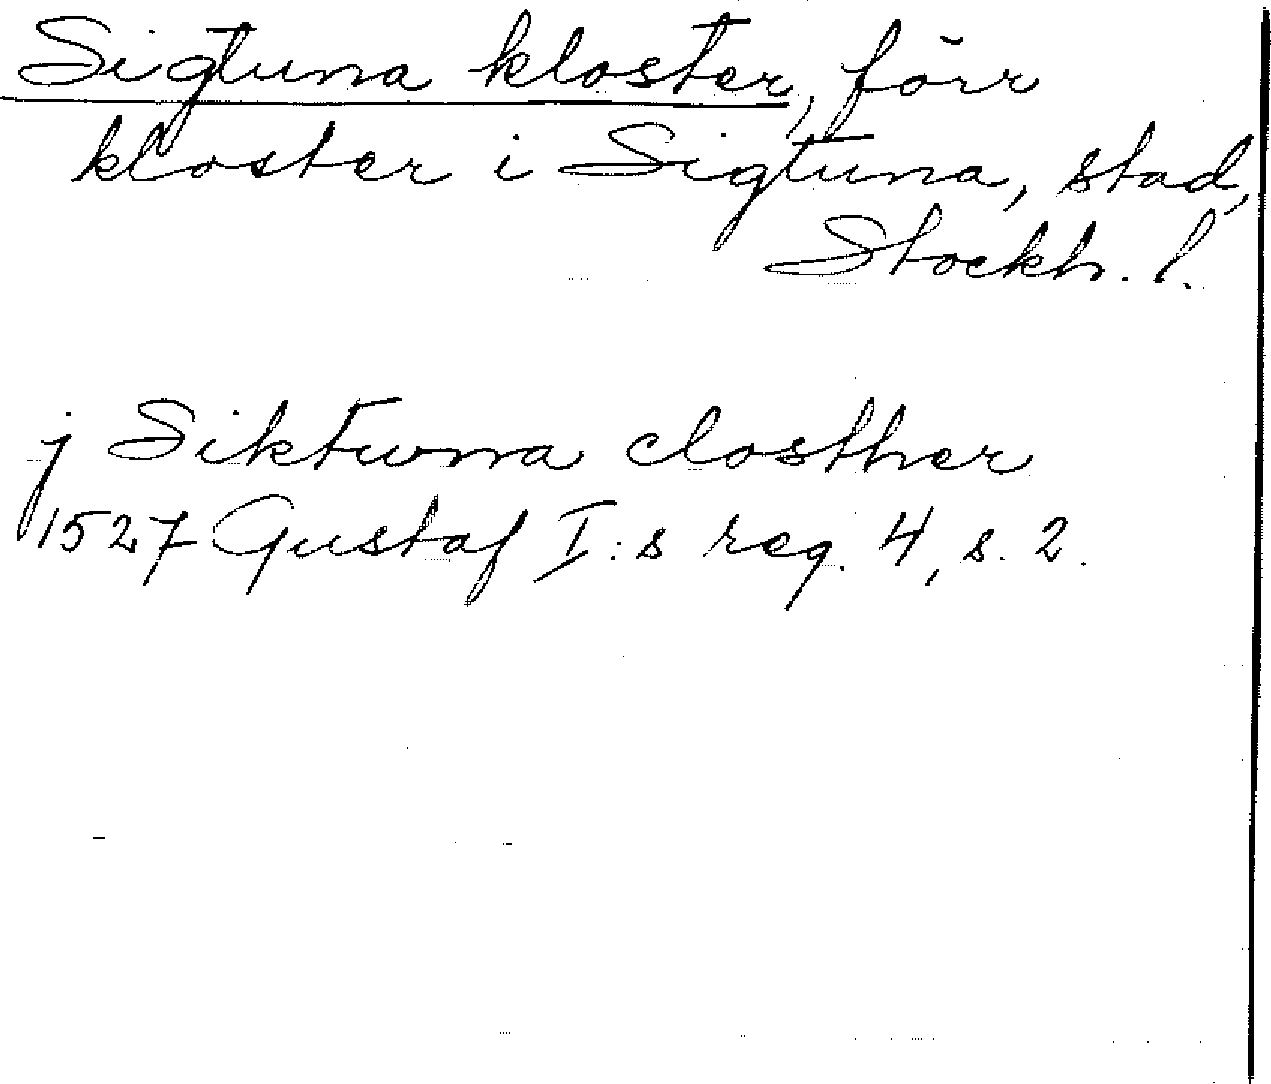 Sigtuna kloster, förr
kloster i Sigtuna, stad,
Stockh. l.
j Siktwna closther
1527 Gustaf I:s reg. 4, s. 2.